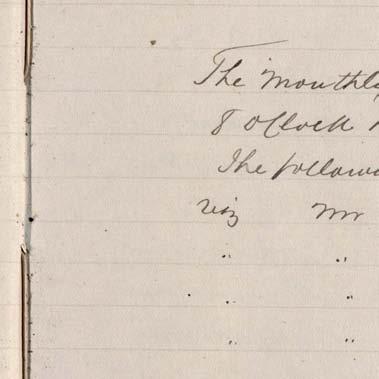 The Monthly
8 oClock
The followi
viz Mr
" "
" "
" "